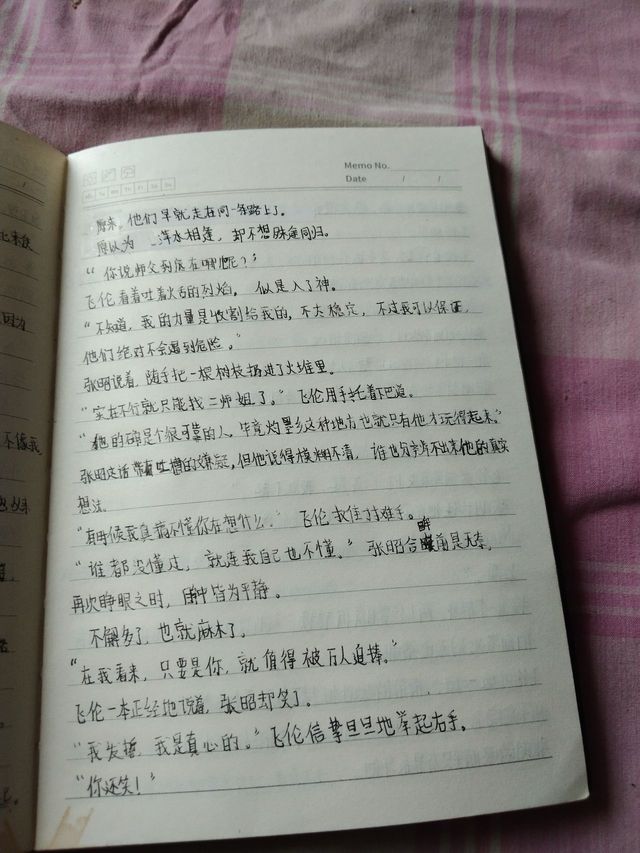 Memo No.
Date / /
原来，他们早就走在同一条路上了。
原以为 萍水相逢，却不想殊途同归。
“你说师父到底在哪呢？”
飞伦看着吐着火舌的烈焰，似是入了神。
“不知道，我的力量是收割给我的，不大稳定，不过我可以保证，
他们绝对不会遇到危险。”
张昭说着，随手把一根树枝扔进了火堆里。
“实在不行就只能找二师姐了。”飞伦用手托着下巴道。
“他的确是个很可靠的人，毕竟灼墨乡这种地方也就只有他才玩得起来。”
张昭这话带有吐槽的嫌疑，但他说得模糊不清，谁也分辨不出来他的真实
想法。
“有时候我真搞不懂你在想什么。”飞伦 对 手。
“谁都没懂过，就连我自己也不懂。”张昭合眸前是无奈，
再次睁眼之时，眼中皆为平静。
不解多了，也就麻木了。
“在我看来，只要是你，就值得被万人追捧。”
飞伦一本正经地说着，张昭却笑了。
“我发誓，我是真心的。”飞伦信挚旦旦地举起右手。
“你还笑！”